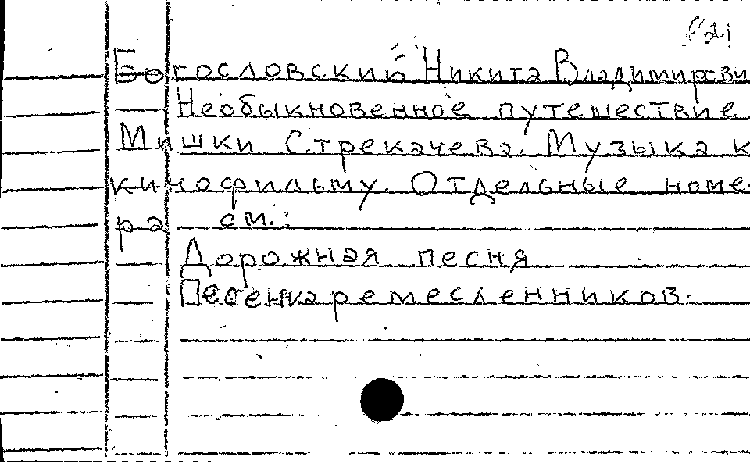 Богословский Никита Владимирови
Необыкновенное путешествие
Мишки Стрекачева. Музыка к
кинофильму. Отдельные номе-
ра см.:
Дорожная песня
Песенка ремесленников.